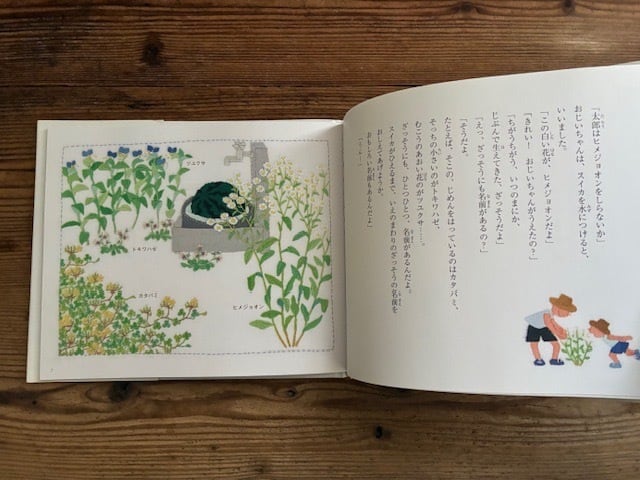 「太郎はヒメジョオンをしらないか」
おじいちゃんは、スイカを水につけると、
いいました。
「この白い花が、ヒメジョオンだよ」
「きれい！ おじいちゃんがうえたの？」
「ちがうちがう、いつのまにか、
じぶんで生えてきた、ざっそうだよ」
「えっ、ざっそうにも名前があるの？」
「そうだよ。
たとえば、そこの、じめんをはっているのはカタバミ、
そっちの小さいのがトキワハゼ、
むこうのあおい花のがツユクサ……。
ざっそうにも、ひとつひとつ、名前があるんだよ。
スイカがひえるまで、いえのまわりのざっそうの名前を
おしえてあげようか。
おもしろい名前もあるんだよ」
ツユクサ
トキワハゼ
カタバミ
ヒメジョオン